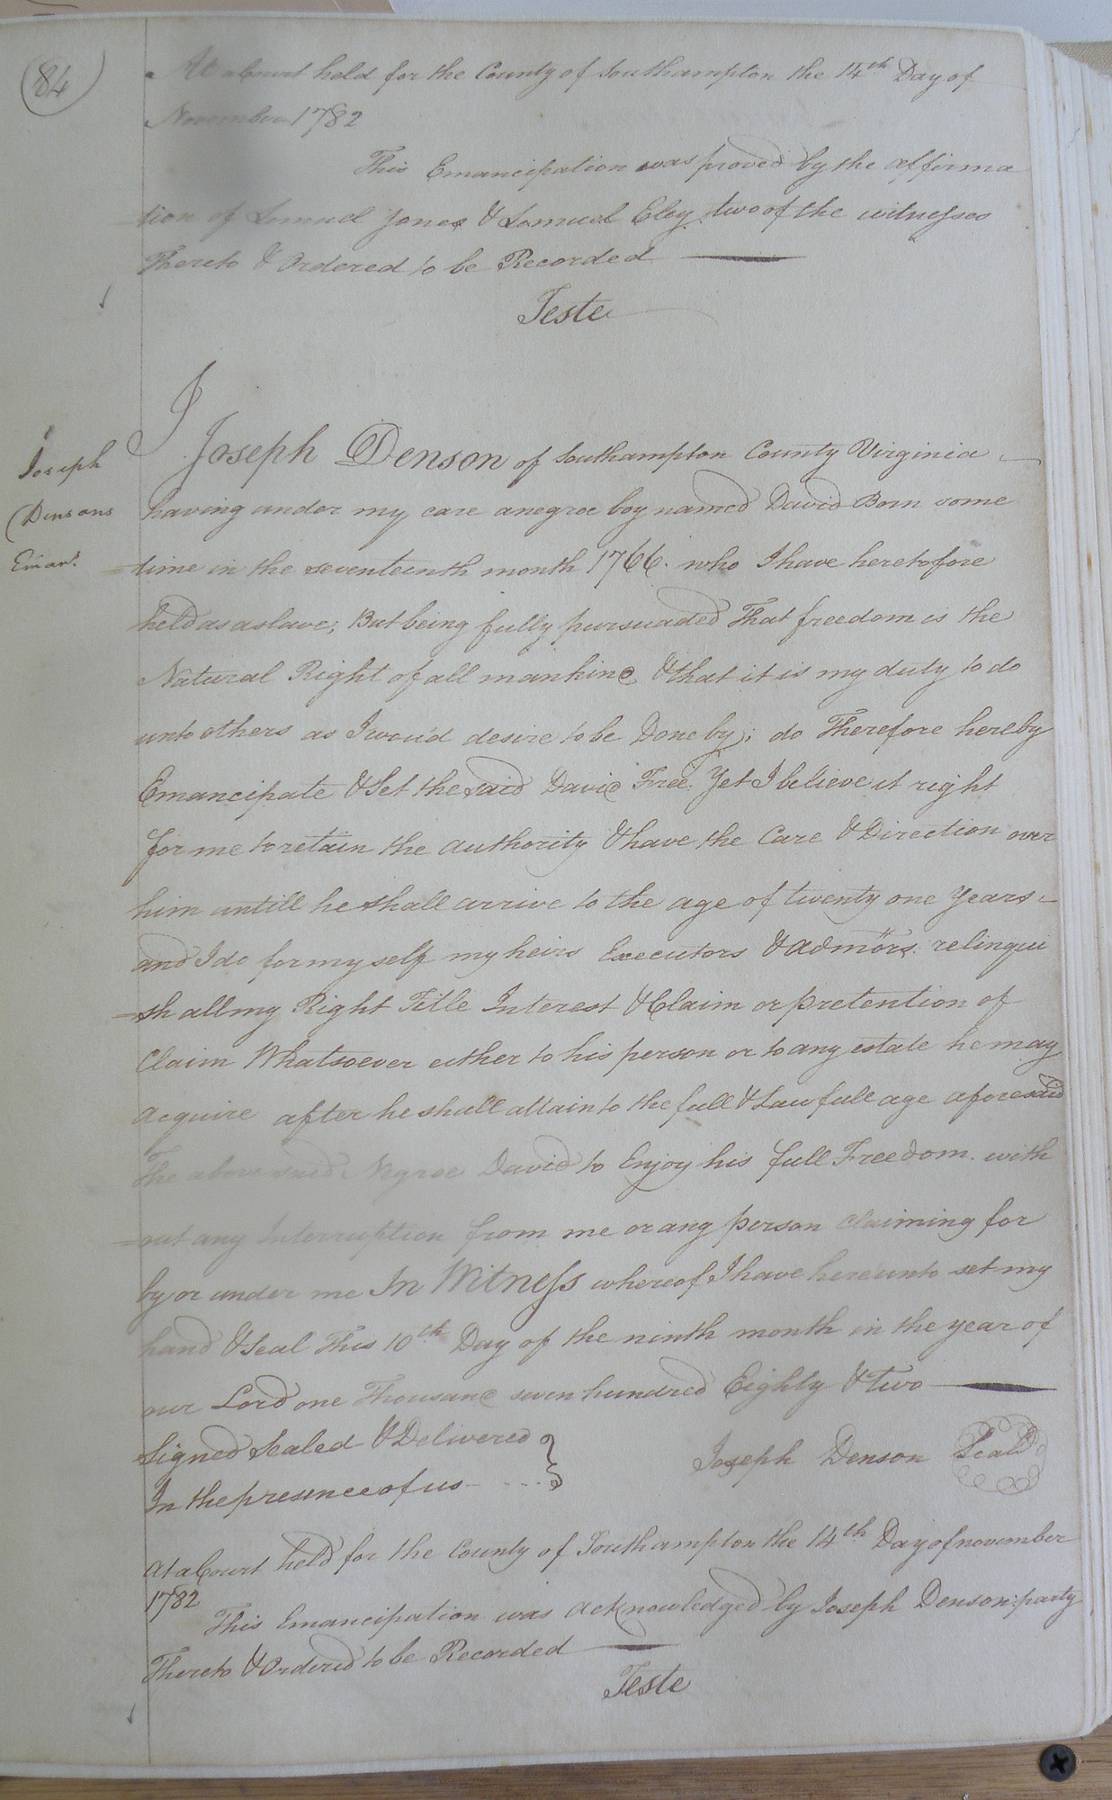 84
At a Court held for the County of Southampton the 14th Day of
November 1782
This Emancipation was proved by the affirma
tion of Samuel Jones & Samuel Eley two of the witnesses
Thereto & Ordered to be Recorded
Teste
Joseph
Densons
Eman.
I Joseph Denson of Southampton County Virginia
having under my care a negroe boy named David Born some
=time in the seventeenth month 1766. who I have heretofore
held as a slave; But being fully pursuaded That freedom is the
Natural Right of all mankind & that it is my duty to do
unto others as I wou'd desire to be Done by; do Therefore hereby
Emancipate & Set the said David Free. Yet I believe it right
for me to retain the authority & have the Care & Direction over
him untill he shall arrive to the age of twenty one Years =
and I do for my self my heirs Executors & admors. relinqui
=sh all my Right Title Interest & Claim or pretention of
Claim Whatsoever either to his person or to any estate he may
Acquire after he shall attain to the full & Lawfull age aforesaid
The above said Negroe David to Enjoy his full Freedom. with
=out any Interruption from me or any person claiming for
by or under me In Witness whereof I have hereunto set my
hand & Seal This 10th Day of the ninth month in the year of
our Lord one Thousand seven hundred Eighty & Two
Signed Sealed & Delivered
In the presence of us - . . .
Joseph Denson Seal
At a Court held for the County of Southampton the 14th Day of november
1782
This Emancipation was acknowledged by Joseph Denson party
Thereto & Ordered to be Recorded
Teste